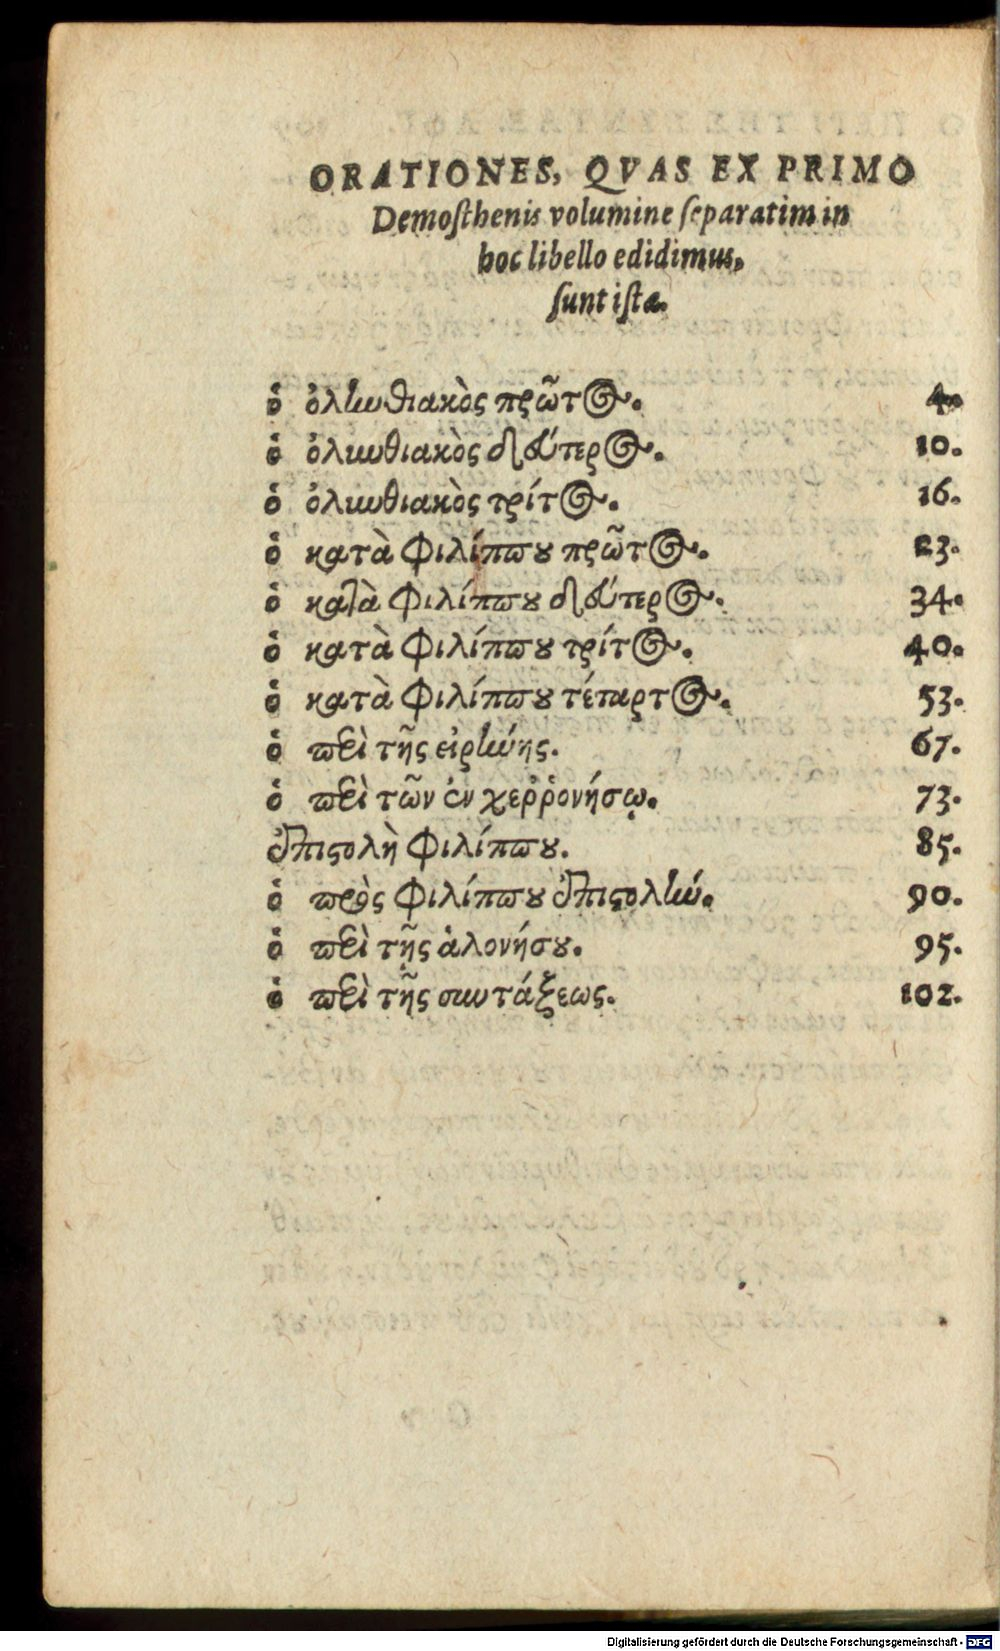 ORATIONES, QVAS EX PRIMO
Demosthenis volumine separatim in
hoc libello edidimus,
sunt ista.
ὁ ὀλυνθιακὸς πρῶτος. 4.
ὁ ὀλυνθιακὸς δεύτερος. 10.
ὁ ὀλυνθιακὸς τρίτος. 16.
ὁ κατὰ Φιλίππου πρῶτος. 23.
ὁ κατὰ Φιλίππου δεύτερος. 34.
ὁ κατὰ Φιλίππου τρίτος. 40.
ὁ κατὰ Φιλίππου τέταρτος. 53.
ὁ περὶ τῆς εἰρήνης. 67.
ὁ περὶ τῶν ἐν χεῤῥονήσῳ. 73.
ἐπιστολὴ Φιλίππου. 85.
ὁ πρὸς Φιλίππου ἐπιστολήν. 90.
ὁ περὶ τῆς ἁλονήσου. 95.
ὁ περὶ τῆς συντάξεως. 102.
Digitalisierung gefördert durch die Deutsche Forschungsgemeinschaft - DFG